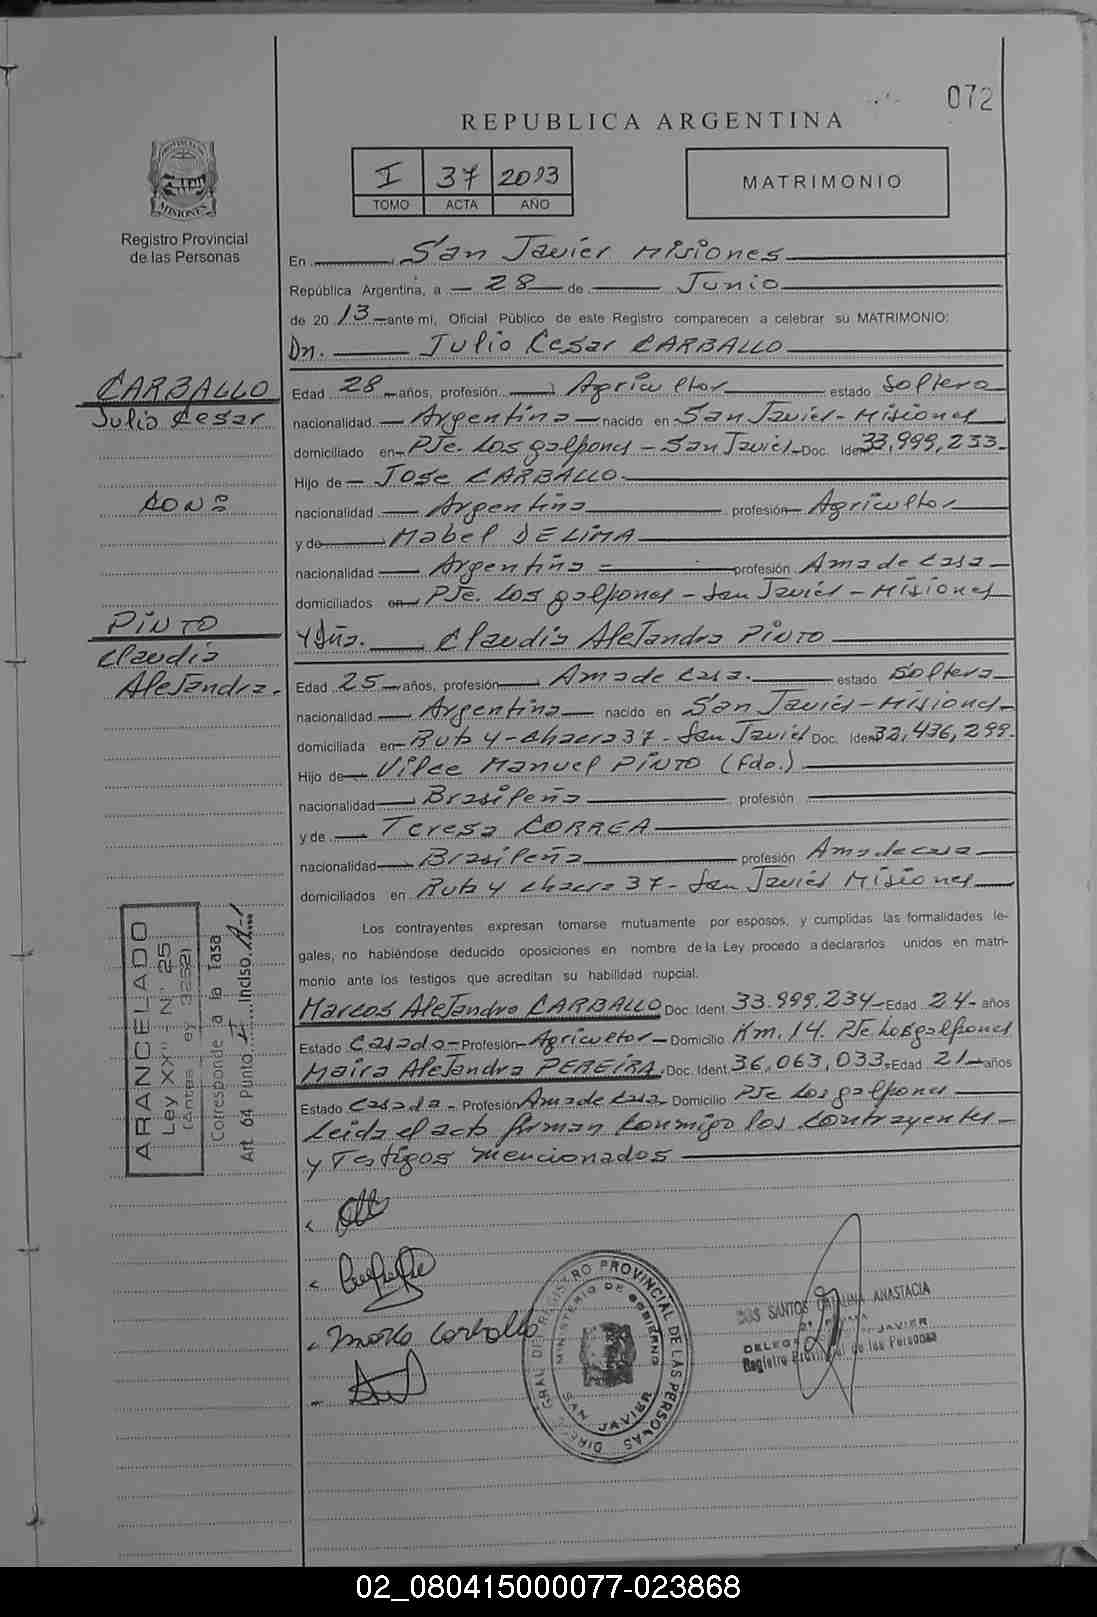 072
REPUBLICA ARGENTINA
I 37 2013
TOMO ACTA AÑO
MATRIMONIO
PROVINCIA DE
MISIONES
Registro Provincial
de las Personas
En San Javier Misiones
República Argentina, a 28 de Junio
de 20 13 ante mí, Oficial Público de este Registro comparecen a celebrar su MATRIMONIO:
Dn. Julio Cesar CARBALLO
CARBALLO
Julio Cesar
CON:
PINTO
Claudia
Alejandra.
Edad 28 años, profesión Agricultor estado Soltero
nacionalidad Argentina nacido en San Javier - Misiones
domiciliado en PJe. Los galpones - San Javier Doc. Iden 33,999,233
Hijo de Jose CARBALLO
nacionalidad Argentina profesión Agricultor
y de Mabel DE LIMA
nacionalidad Argentina profesión Ama de casa
domiciliados en PJe. Los galpones - San Javier - Misiones
Y Dña. Claudia Alejandra PINTO
Edad 25 años, profesión Ama de casa. estado Soltera
nacionalidad Argentina nacido en San Javier - Misiones
domiciliada en Ruta 4 - Chacra 37 - San Javier Doc. Iden 32,436,299.
Hijo de Vilce Manuel PINTO (Fdo.)
nacionalidad Brasileña profesión
y de Teresa CORREA
nacionalidad Brasileña profesión Ama de casa
domiciliados en Ruta 4 chacra 37 - San Javier Misiones
Los contrayentes expresan tomarse mutuamente por esposos, y cumplidas las formalidades le-
gales, no habiéndose deducido oposiciones en nombre de la Ley procedo a declararlos unidos en matri-
monio ante los testigos que acreditan su habilidad nupcial.
Marcos Alejandro CARBALLO Doc. Ident 33.999.234 Edad 24 años
Estado Casado Profesión Agricultor Domicilio Km. 14. PJe Los galpones
Maira Alejandra PEREIRA Doc. Ident. 36,063,033 Edad 21 años
Estado Casada Profesión Ama de casa Domicilio PJe Los galpones
Leida el acta firman conmigo los contrayentes
y Testigos mencionados
ARANCELADO
Ley XX" - N° 25
(Antes ey 3252)
Corresponde a la Tasa
Art. 64 Punto I Inciso A-1
Carballo
DIREC. GRAL. DE REGISTRO PROVINCIAL DE LAS PERSONAS
MINISTERIO DE GOBIERNO
SAN JAVIER
DOS SANTOS CATALINA ANASTACIA
JAVIER
Registro Provincial de las Personas
02_080415000077-023868